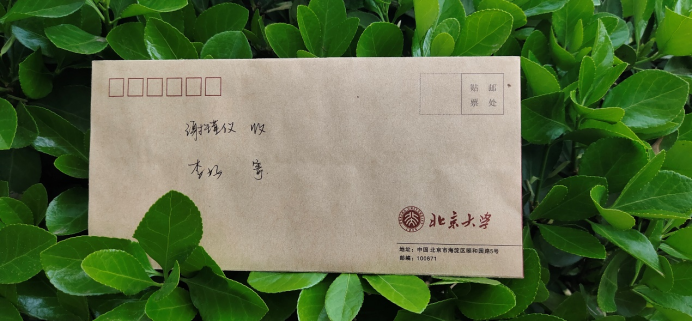 贴 邮
票 处
谢瑾仪 收
李 寄
北京大学
地址：中国·北京市海淀区颐和园路5号
邮编：100871